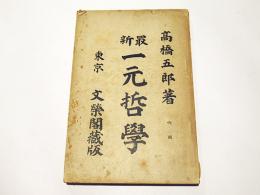 高橋五郎著
最新
一元哲學
東京
文榮閣藏版